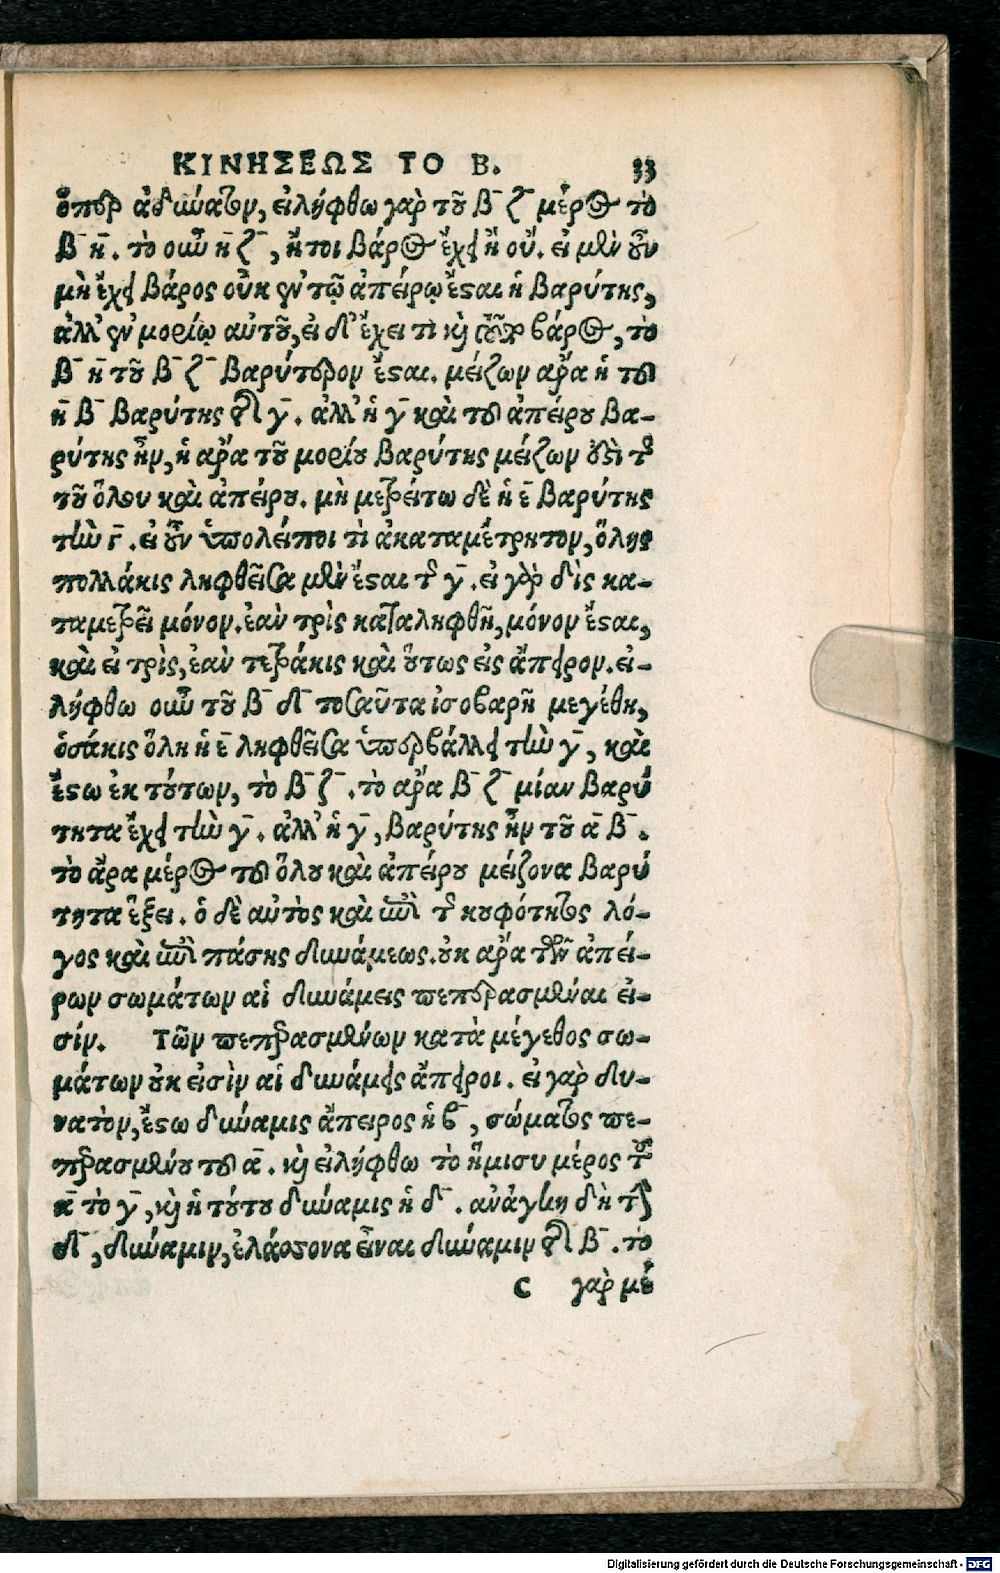 ΚΙΝΗΣΕΩΣ ΤΟ Β. 33
ὅπερ ἀδύνατον, εἰλήφθω γὰρ τοῦ β̄ ζ̄ μέρος τὸ
β̄ η̄. τὸ οὖν η̄ ζ̄, ἤτοι βάρος ἔχει ἢ οὔ. εἰ μὲν οὖν
μὴ ἔχει βάρος οὐκ ἐν τῷ ἀπείρῳ ἔσται ἡ βαρύτης,
ἀλλ' ἐν μορίῳ αὐτοῦ, εἰ δ' ἔχει τὶ καὶ βάρος, τὸ
β̄ η̄ τοῦ β̄ ζ̄ βαρύτερον ἔσται. μείζων ἄρα ἡ τοῦ
η̄ β̄ βαρύτης τῆς γ̄. ἀλλ' ἡ γ̄ καὶ τοῦ ἀπείρου βα-
ρύτης ἦν, ἡ ἄρα τοῦ μορίου βαρύτης μείζων ἐστὶ τῆς
τοῦ ὅλου καὶ ἀπείρου. μὴ μετρείτω δὲ ἡ ε̄ βαρύτης
τὴν γ̄. εἰ οὖν ὑπολείποι τὶ ἀκαταμέτρητον, ὅλης
πολλάκις ληφθεῖσα μὲν ἔσται τῆς γ̄. εἰ γὰρ δὶς κα-
ταμετρεῖ μόνον. ἐὰν τρὶς καταληφθῇ, μόνον ἔσται,
καὶ εἰ τρὶς, ἐὰν τετράκις καὶ οὕτως εἰς ἄπειρον. εἰ-
λήφθω οὖν τοῦ β̄ δ̄ τοσαῦτα ἰσοβαρῆ μεγέθη,
ὁσάκις ὅλη ἡ ε̄ ληφθεῖσα ὑπερβάλλει τὴν γ̄, καὶ
ἔστω ἐκ τούτων, τὸ β̄ ζ̄. τὸ ἄρα β̄ ζ̄ μίαν βαρύ
τητα ἔχει τὴν γ̄. ἀλλ' ἡ γ̄, βαρύτης ἦν τοῦ ᾱ β̄.
τὸ ἄρα μέρος τοῦ ὅλου καὶ ἀπείρου μείζονα βαρύ
τητα ἕξει. ὁ δὲ αὐτὸς καὶ ἐπὶ τῆς κουφότητος λό-
γος καὶ ἐπὶ πάσης δυνάμεως. οὐκ ἄρα τῶν ἀπεί-
ρων σωμάτων αἱ δυνάμεις πεπερασμέναι εἰ-
σίν. Τῶν πεπερασμένων κατὰ μέγεθος σω-
μάτων οὐκ εἰσὶν αἱ δυνάμεις ἄπειροι. εἰ γὰρ δυ-
νατὸν, ἔστω δύναμις ἄπειρος ἡ β̄, σώματος πε-
περασμένου τοῦ ᾱ. καὶ εἰλήφθω τὸ ἥμισυ μέρος τοῦ
ᾱ τὸ γ̄, καὶ ἡ τούτου δύναμις ἡ δ̄. ἀνάγκη δὴ τὴν
δ̄, δύναμιν, ἐλάσσονα εἶναι δύναμιν τῆς β̄. τὸ
C γὰρ μέ
Digitalisierung gefördert durch die Deutsche Forschungsgemeinschaft - DFG